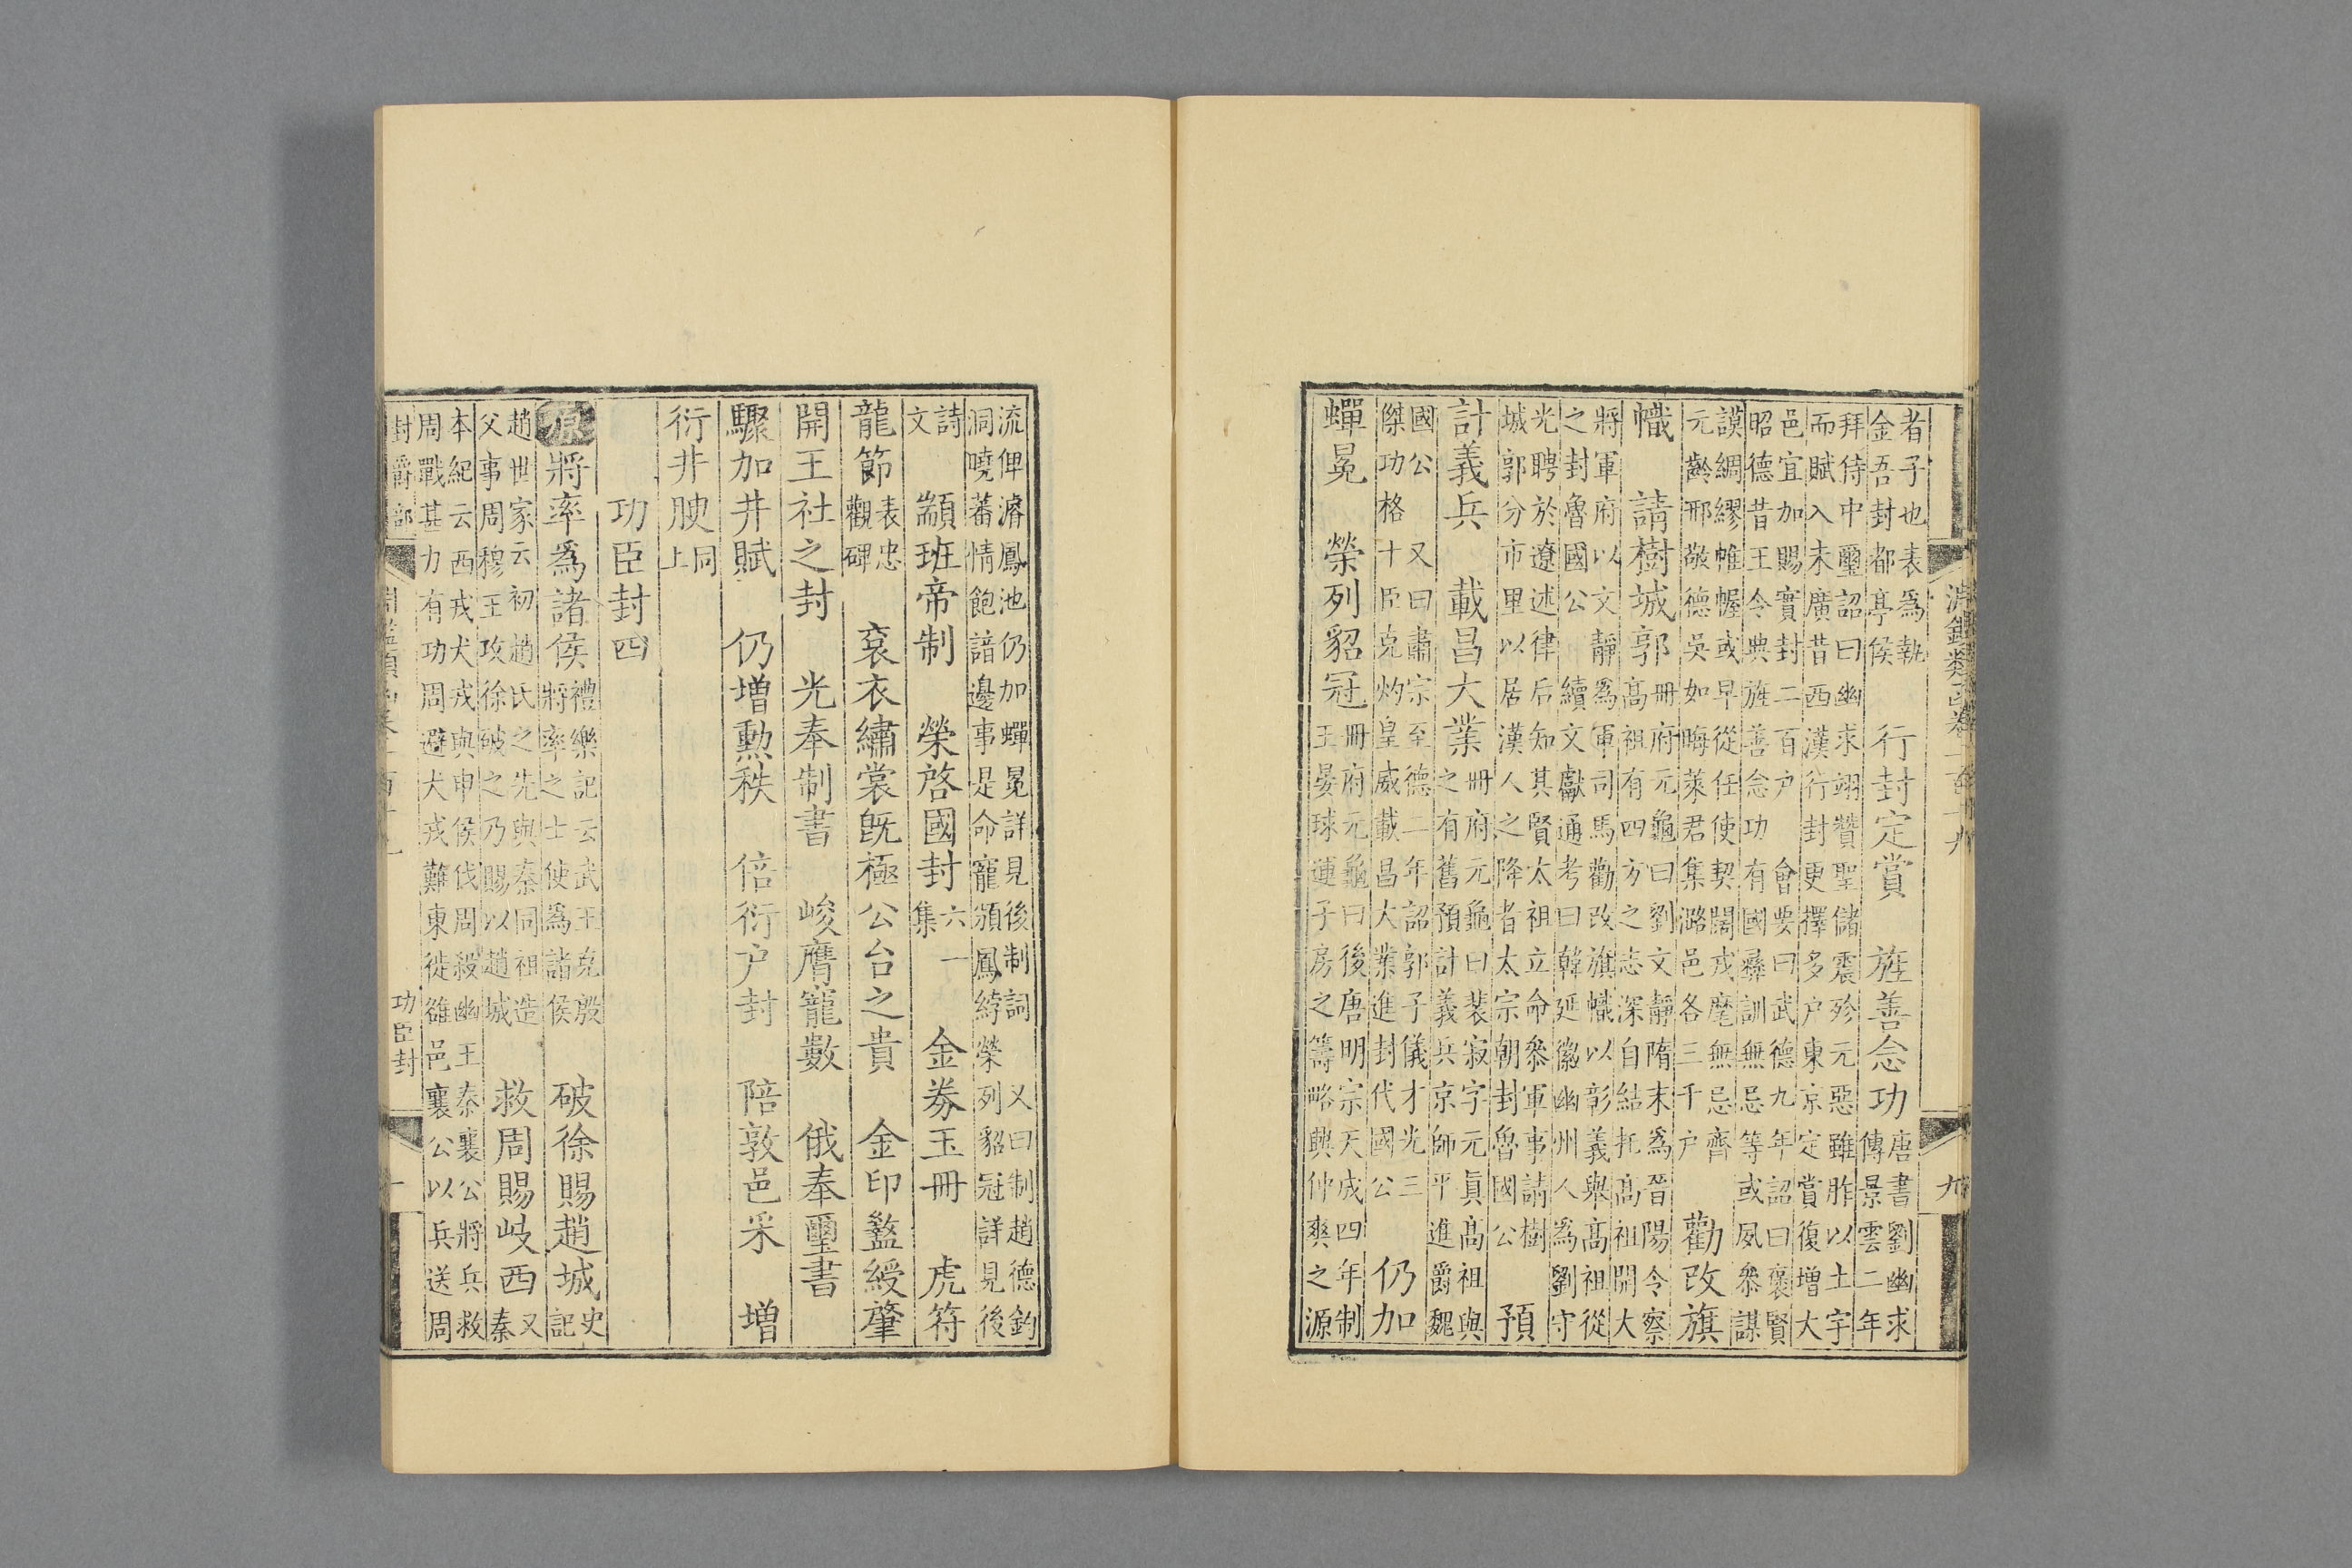 淵鑑類函卷一百十九 九
者子也表為執
金吾封都亭侯
行封定賞 旌善念功
唐書劉幽求
傳景雲二年
拜侍中璽詔曰幽求翊贊聖儲震殄元惡雖胙以土宇
而賦入未廣昔西漢行封更擇多户東京定賞復增大
邑宜加賜實封二百户 會要曰武德九年詔曰褒賢
昭德昔王令典旌善念功有國彝訓無忌等或夙叅謀
謨綢繆帷幄或早從任使契闊戎麾無忌齊
元齡邢敬德吳如晦萊君集潞邑各三千户
勸改旗
幟 請樹城郭
冊府元龜曰劉文靜隋末為晉陽令察
高祖有四方之志深自結托高祖開大
將軍府以文靜為軍司馬勸改旗幟以彰義舉高祖從
之封魯國公 續文獻通考曰韓延徽幽州人為劉守
光聘於遼述律后知其賢太祖立命叅軍事請樹
城郭分市里以居漢人之降者太宗朝封魯國公
預
計義兵 載昌大業
冊府元龜曰裴寂字元真高祖與
之有舊預計義兵京師平進爵魏
國公 又曰肅宗至德二年詔郭子儀才光三
傑功格十臣克灼皇威載昌大業進封代國公
仍加
蟬冕 榮列貂冠
冊府元龜曰後唐明宗天成四年制
王晏球運子房之籌略興仲爽之源
流俾濬鳳池仍加蟬冕詳見後制詞 又曰制趙德鈞
洞曉蕃情飽諳邊事是命寵頒鳳綍榮列貂冠詳見後
詩
文
顓班帝制 榮啓國封
六一
集
金券玉冊 虎符
龍節
表忠
觀碑
衮衣繡裳既極公台之貴 金印盭綬肇
開王社之封 光奉制書 峻膺寵數 俄奉璽書
驟加井賦 仍增勲秩 倍衍户封 陪敦邑采 增
衍井腴
同
上
功臣封四
原 將率為諸侯
禮樂記云武王克殷
將率之士使為諸侯
破徐賜趙城
史
記
趙世家云初趙氏之先與秦同祖造
父事周穆王攻徐破之乃賜以趙城
救周賜岐西
又
秦
本紀云西戎犬戎與申侯伐周殺幽王秦襄公將兵救
周戰甚力有功周避犬戎難東徙雒邑襄公以兵送周
封爵部 功臣封